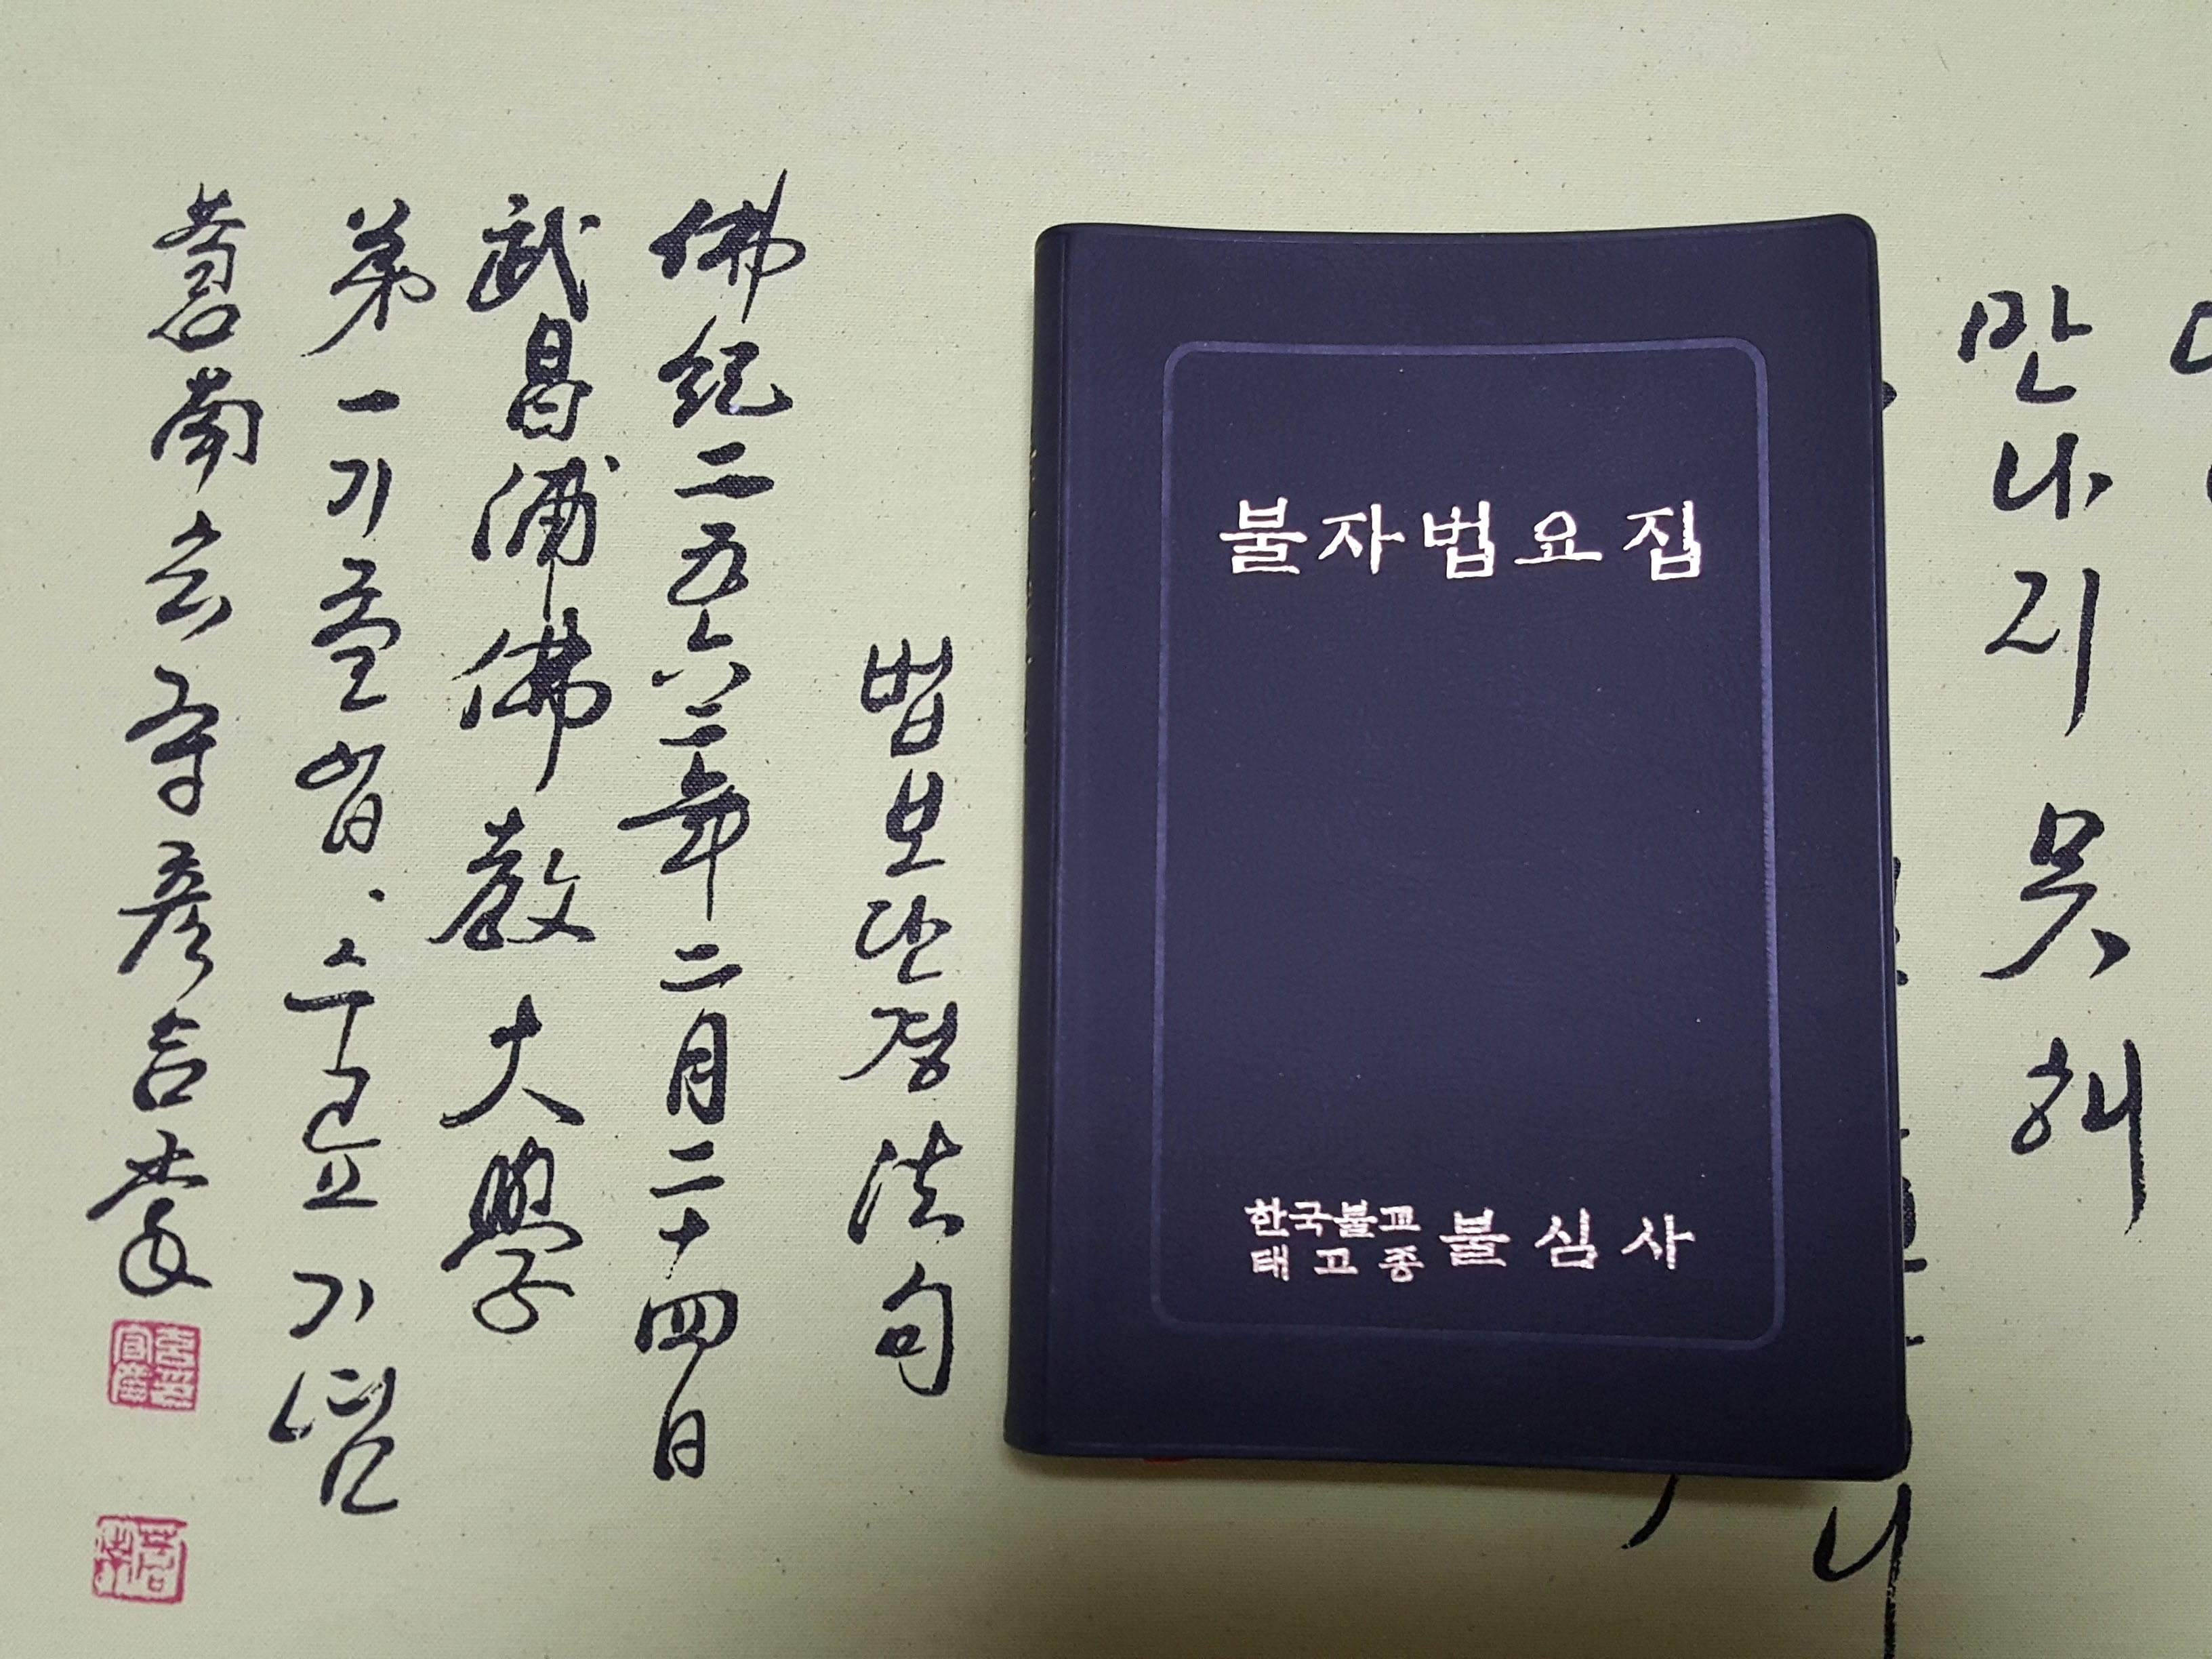 만나지 못해
불자법요집
한국불교
태고종 불심사
법보단경 法句
佛紀二五六二年二月二十四日
武昌浦佛教大學
第一기졸업·수료기념